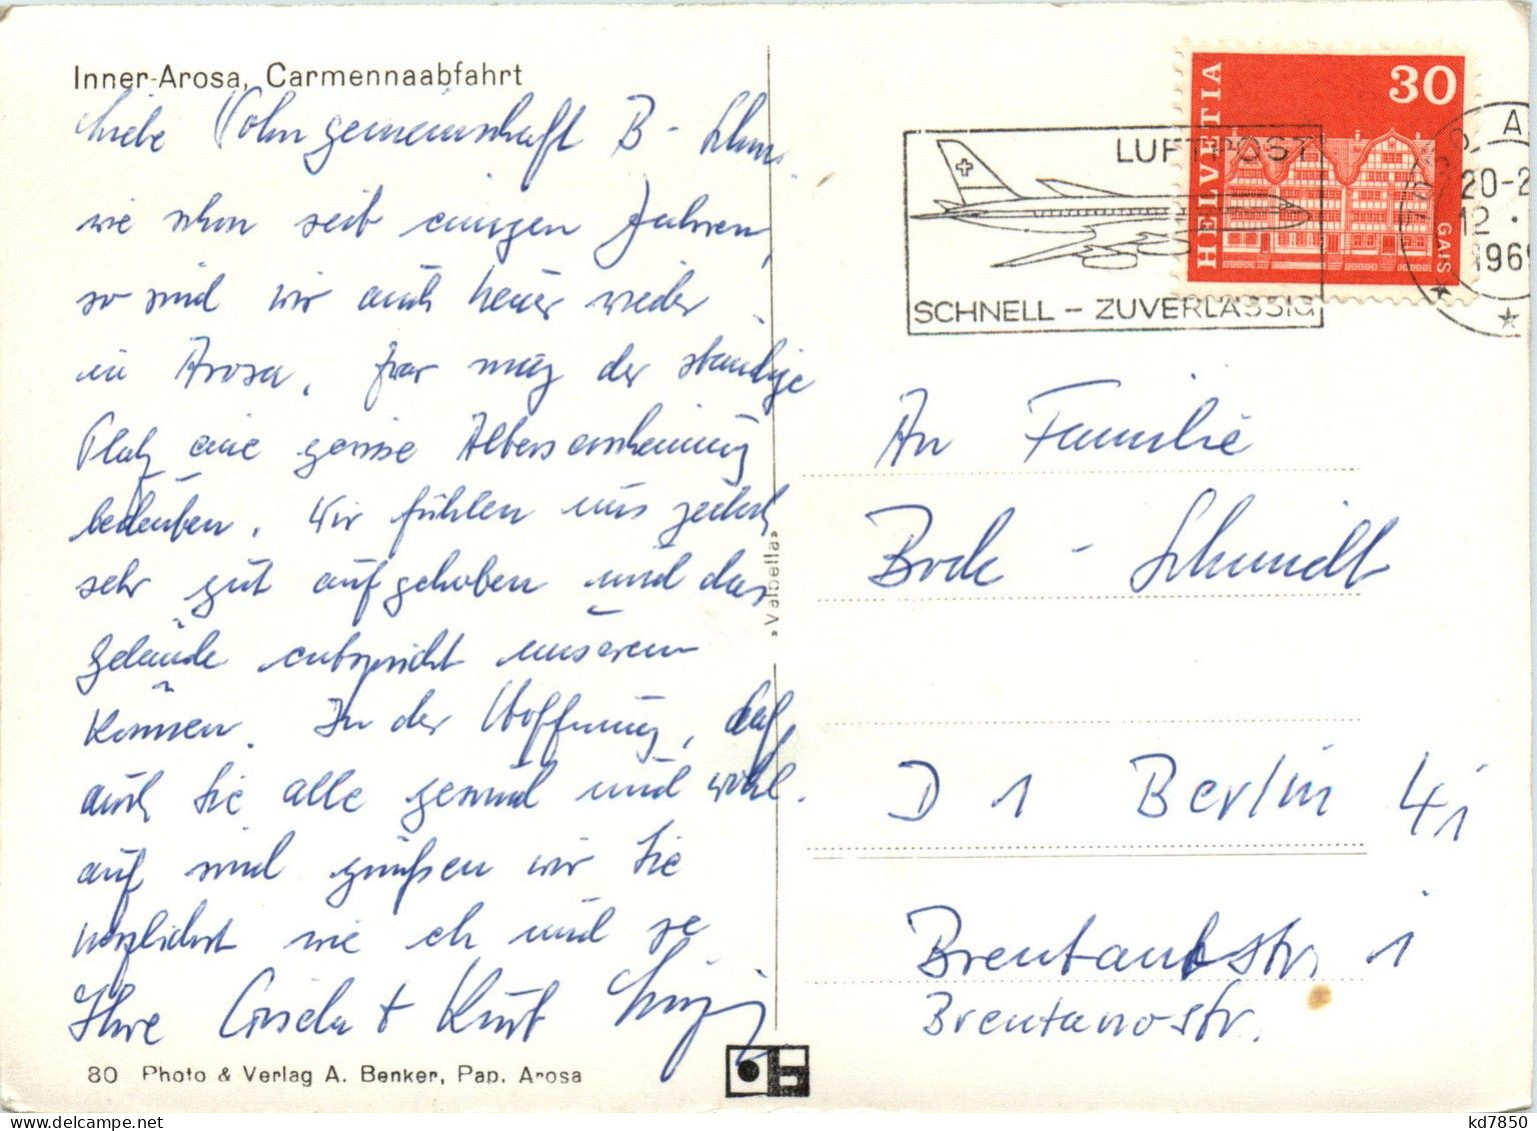 Inner-Arosa, Carmennaabfahrt
Liebe Wohngemeinschaft B - Schm.
wie schon seit einigen Jahren,
so sind wir auch heuer wieder
in Arosa. Zwar mag der ständige
Platz eine gewisse Alterserscheinung
bedeuten. Wir fühlen uns jedoch
sehr gut aufgehoben und das
Gelände entspricht unserem
Können. In der Hoffnung, daß
auch Sie alle gesund und wohl
auf sind grüßen wir Sie
herzlichst wie eh und je
Ihre Gisela + Kurt
80 Photo & Verlag A. Benker, Pap. Arosa
»Valbella«
LUFTPOST
SCHNELL - ZUVERLÄSSIG
HELVETIA
30
GAIS
A
20-2
12 .
1969
An Familie
Bode - Schmidt
D 1 Berlin 41
Brentanostr 1
Brentanostr.
kd7850